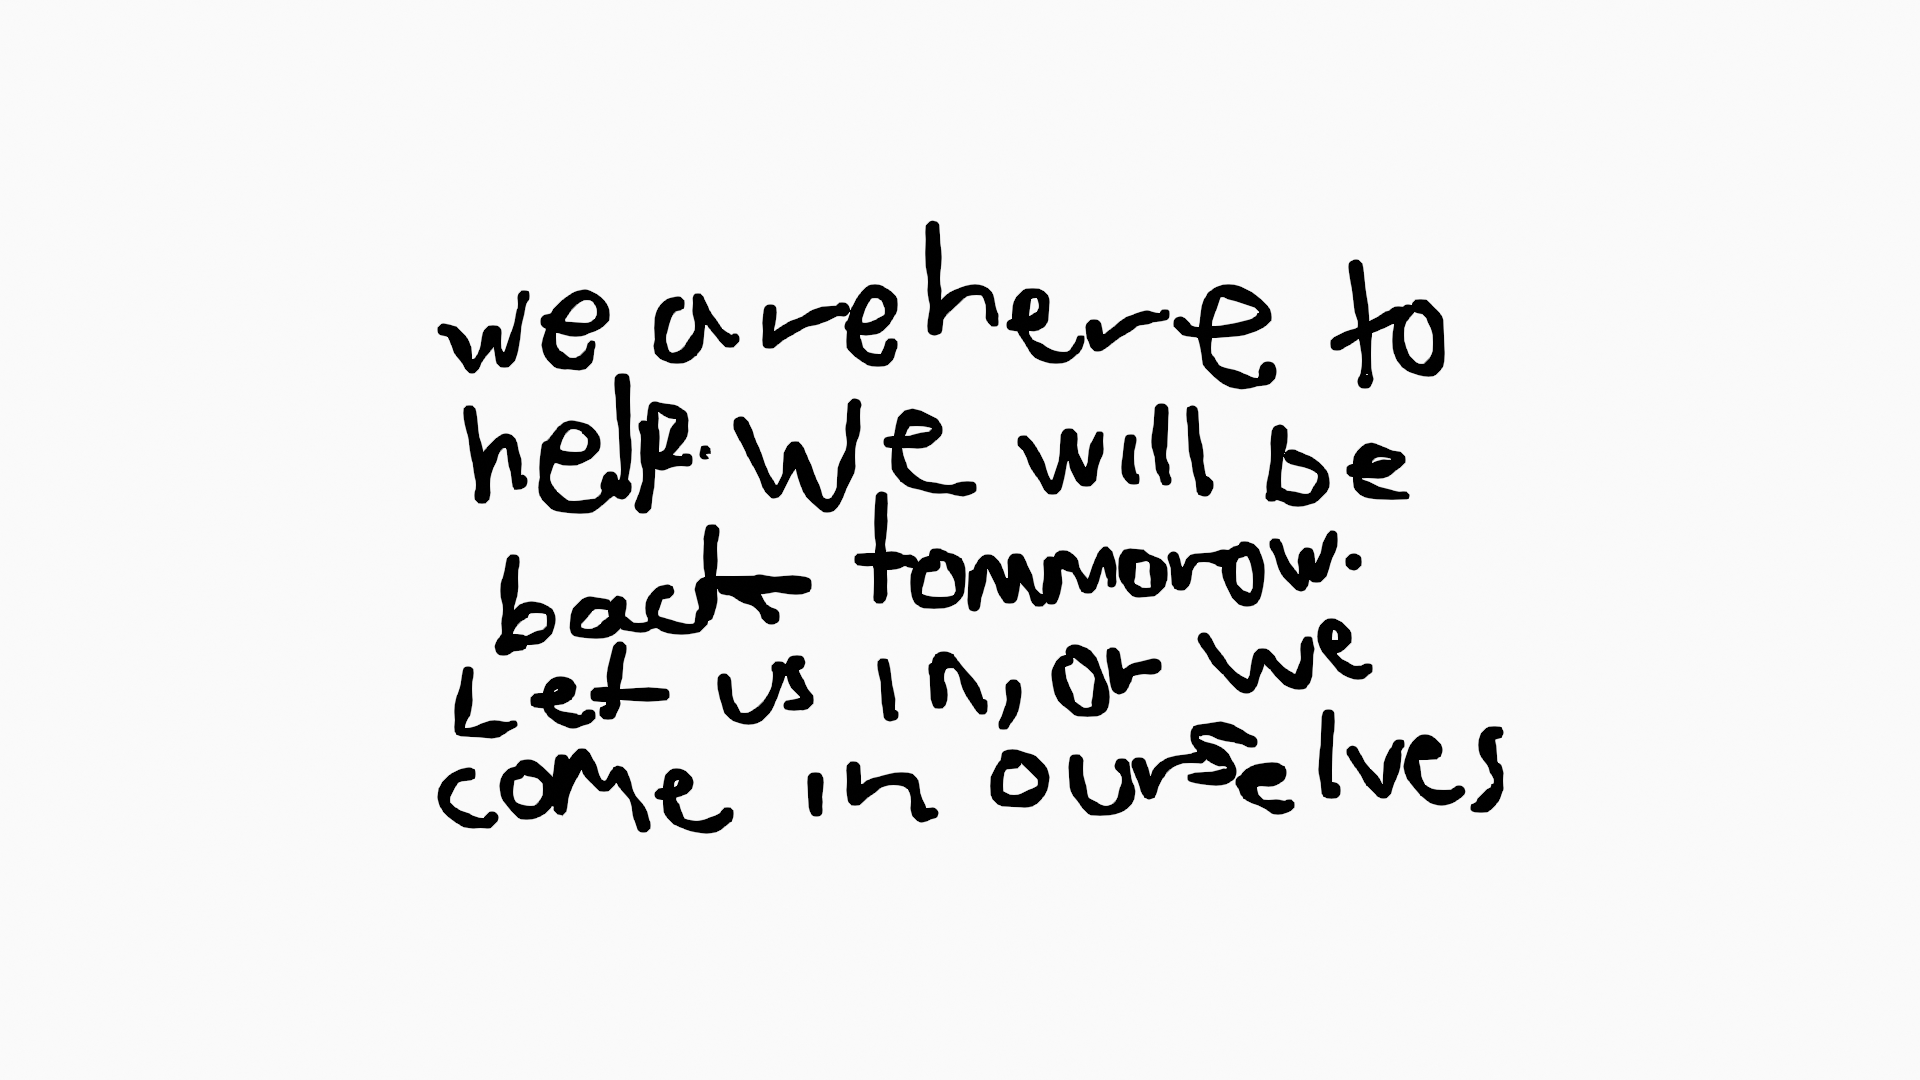 we are here to
help. We will be
back tommorow.
Let us in, or we
come in ourselves